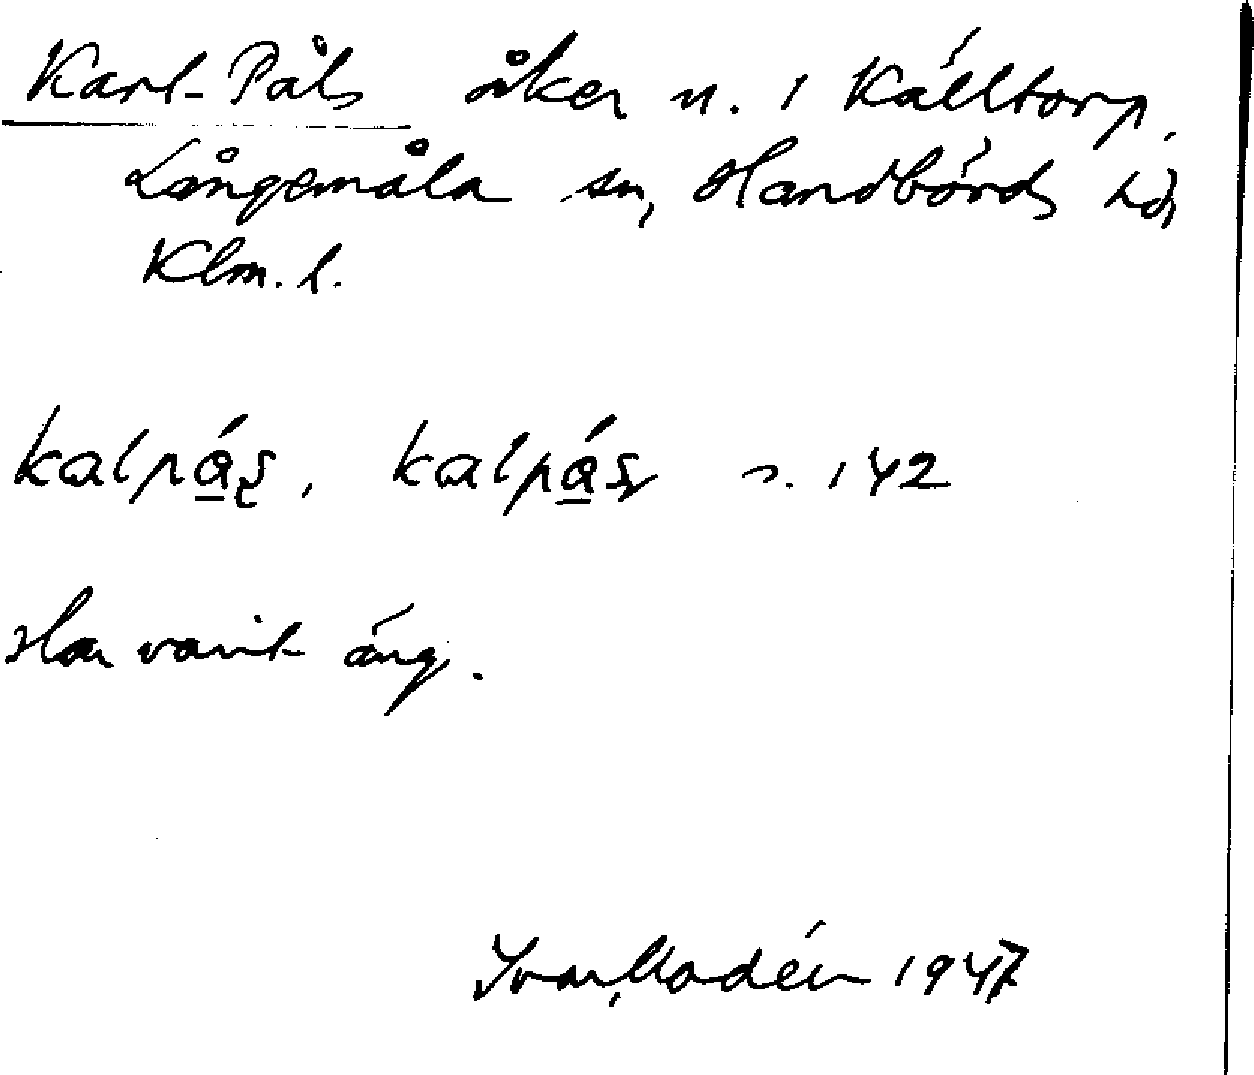 Karl-Påls åker n. i Källtorp,
Långemåla sn, Handbörds hd,
Klm. l.
kalpás, kalpás s. 142
Har varit äng.
Ivar Modéer 1947